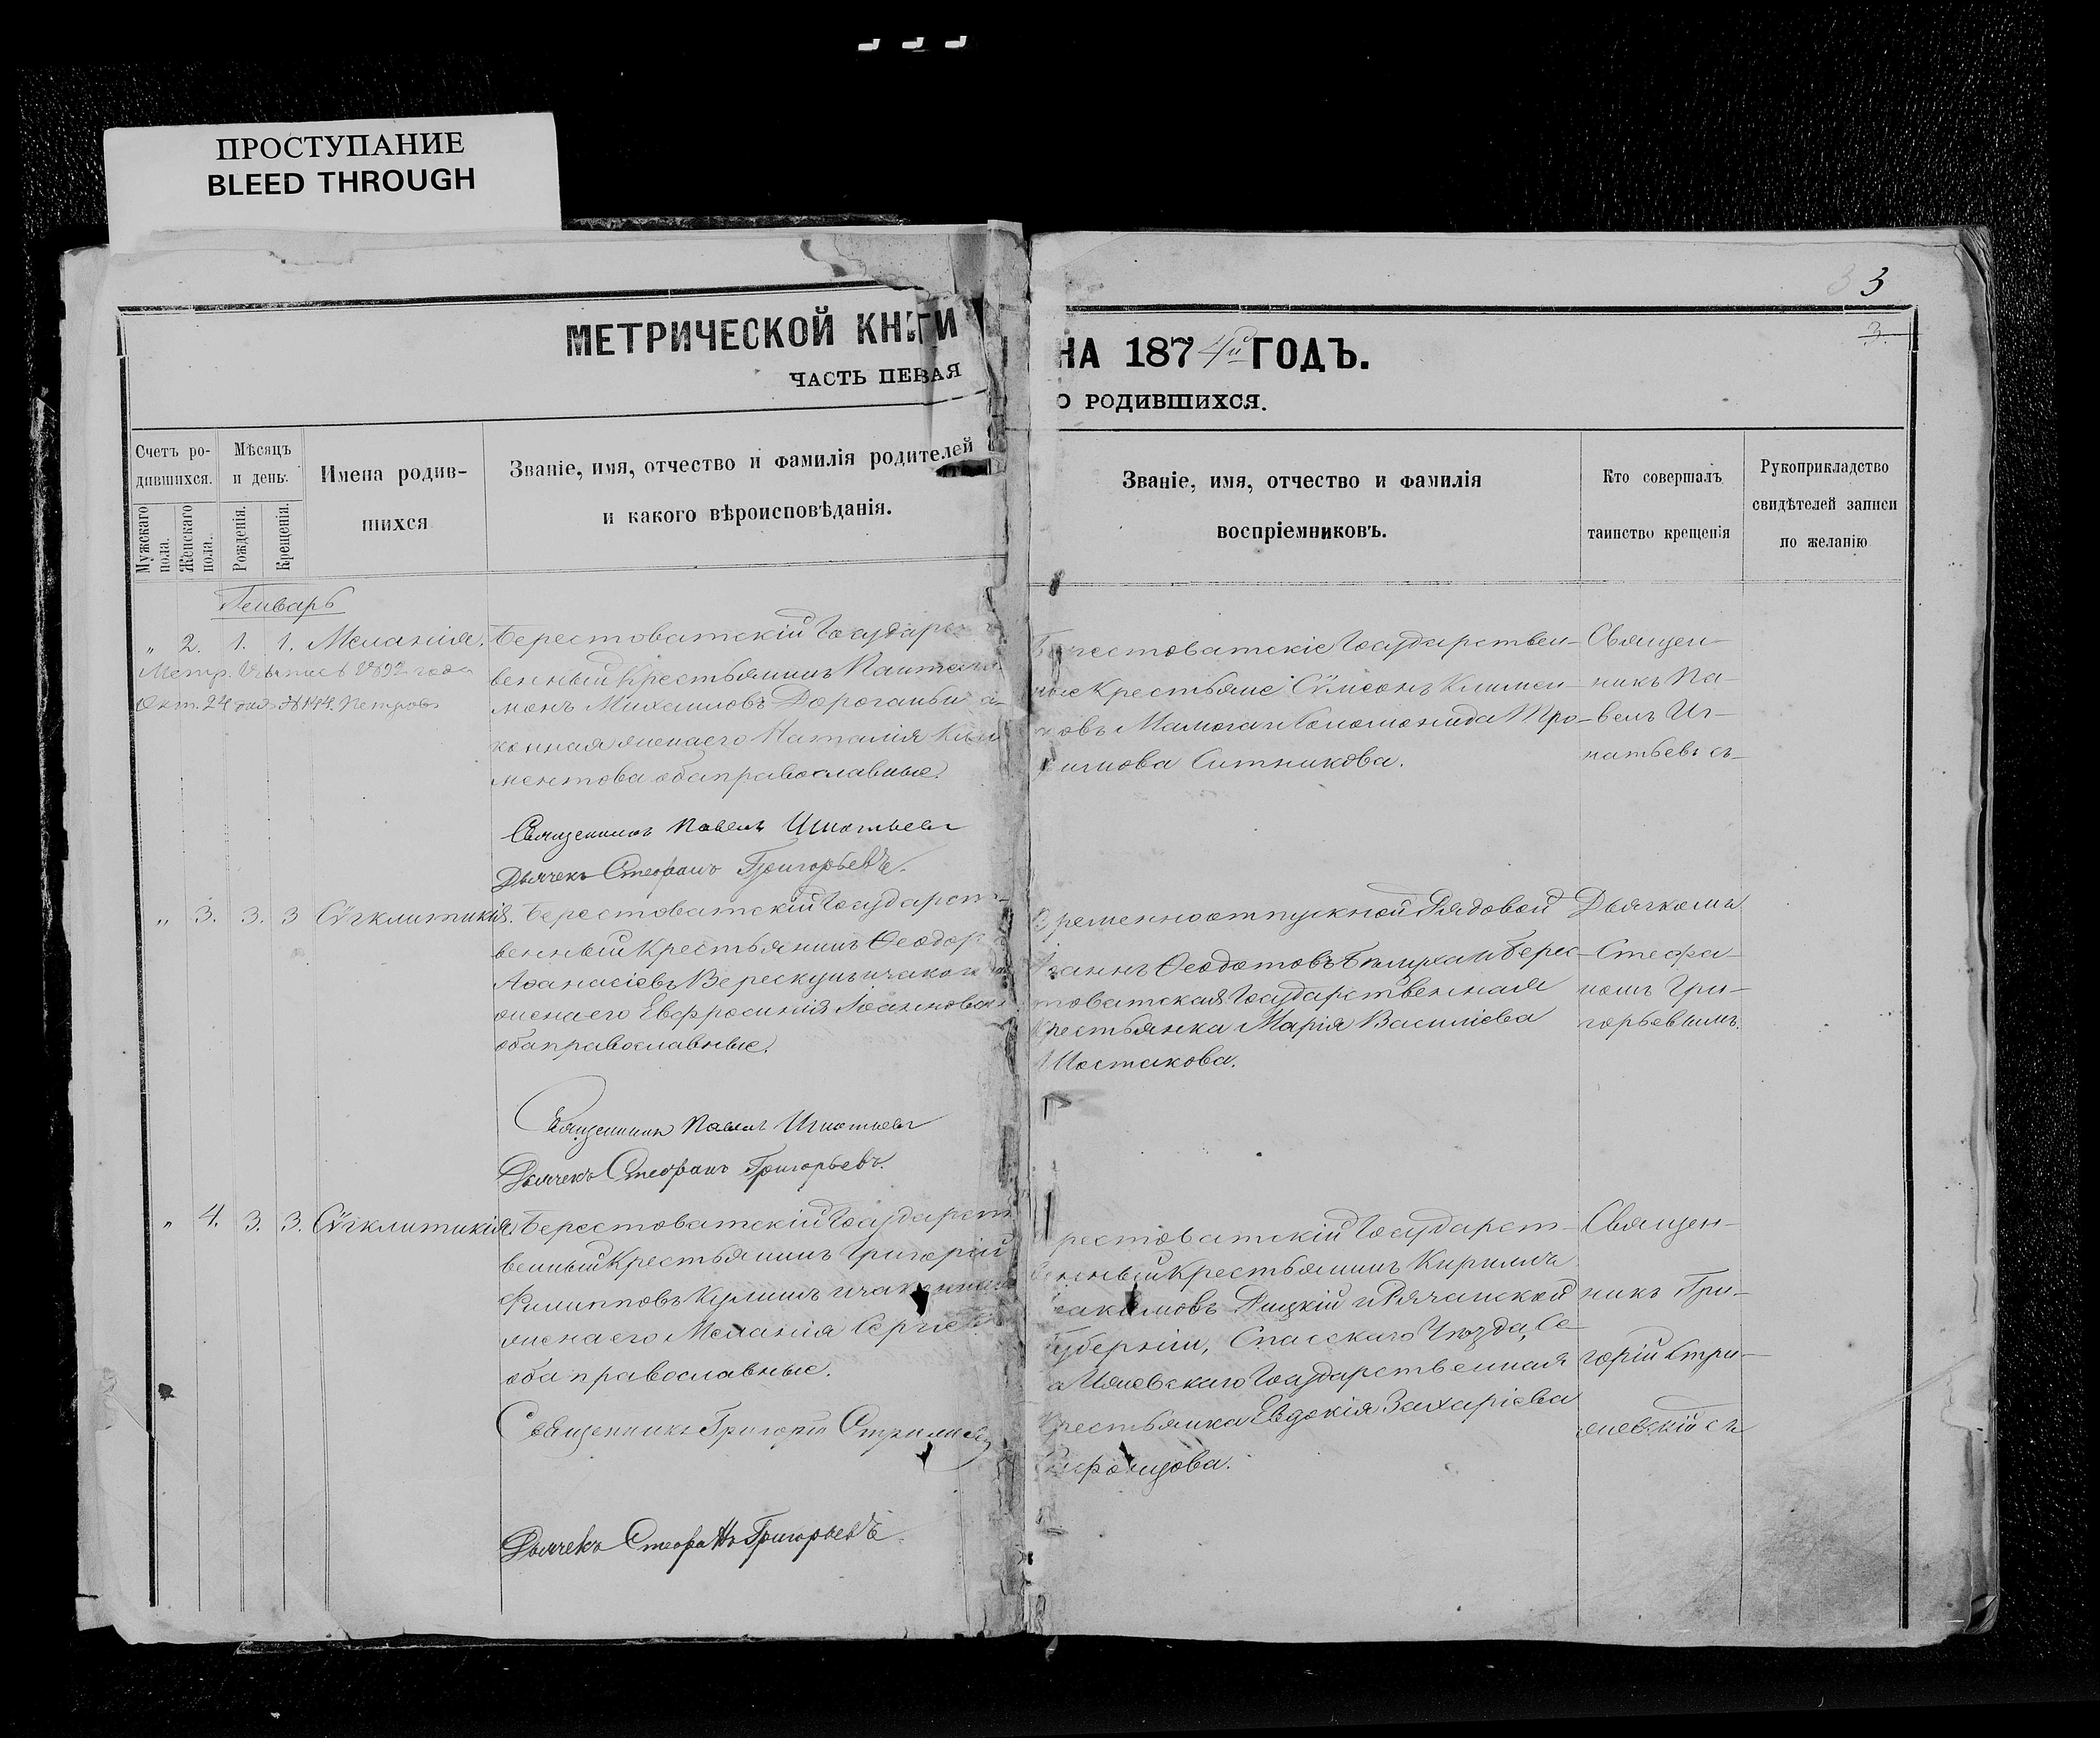 ПРОСТУПАНИЕ
BLEED THROUGH
3
3.
МЕТРИЧЕСКОЙ КНИГИ
ЧАСТЬ ПЕВАЯ
НА 1874й ГОДЪ.
О РОДИВШИХСЯ.
Счетъ ро-
дившихся.
Мужскаго пола.
Женскаго пола.
Мѣсяцъ
и день.
Рожденія.
Крещенія.
Имена родив-
шихся
Званіе, имя, отчество и фамилія родителей
и какого вѣроисповѣданія.
Званіе, имя, отчество и фамилія
воспріемниковъ.
Кто совершалъ
таинство крещенія
Рукоприкладство
свидѣтелей записи
по желанію
Генварь
„ 2. 1. 1. Меланія.
Метр. выпись 1892 года
Окт. 24 дня №144. Петровъ
Берестоватскій Государст
венный Крестьянинъ Пантеле
монъ Михаиловъ Дороганъ и за
конная жена его Наталія Кли
ментова оба православные.
Священникъ Павелъ Игнатьевъ
Дьячекъ Стефанъ Григорьевъ.
Берестоватскіе Государствен-
ные Крестьяне Сѵмеонъ Климен
товъ Мамога и Соломонида Тро-
фимова Ситникова.
Священ-
никъ Па-
велъ Иг-
натьевъ съ
„ 3. 3. 3 Сѵгклитикія.
Берестоватскій Государст-
венный Крестьянинъ Ѳеодоръ
Аѳанасіевъ Верескунъ и законная
жена его Евфросинія Іоаннова
оба православные.
Священникъ Павелъ Игнатьевъ
Дьячекъ Стефанъ Григорьевъ.
Временноотпускной Рядовой
Іоаннъ Ѳеодотовъ и Берес-
товатская Государственная
Крестьянка Марія Василіева
Шостакова.
Дьячкомъ
Стефа-
номъ Гри-
горьевымъ.
„ 4. 3. 3. Сѵгклитикія.
Берестоватскій Государст
венный Крестьянинъ Григорій
Филипповъ и законная
жена его Меланія Сергіева
оба православные.
Священникъ Григорій
Дьячекъ Стефанъ Григорьевъ.
Берестоватскій Государст-
венный Крестьянинъ Кириллъ
Іоакимовъ и Рязанской
Губерніи, Спасскаго Уѣзда, Се
Государственная
Крестьянка Евдокія Захаріева
Священ-
никъ Гри-
горій Стри-
жевскій съ